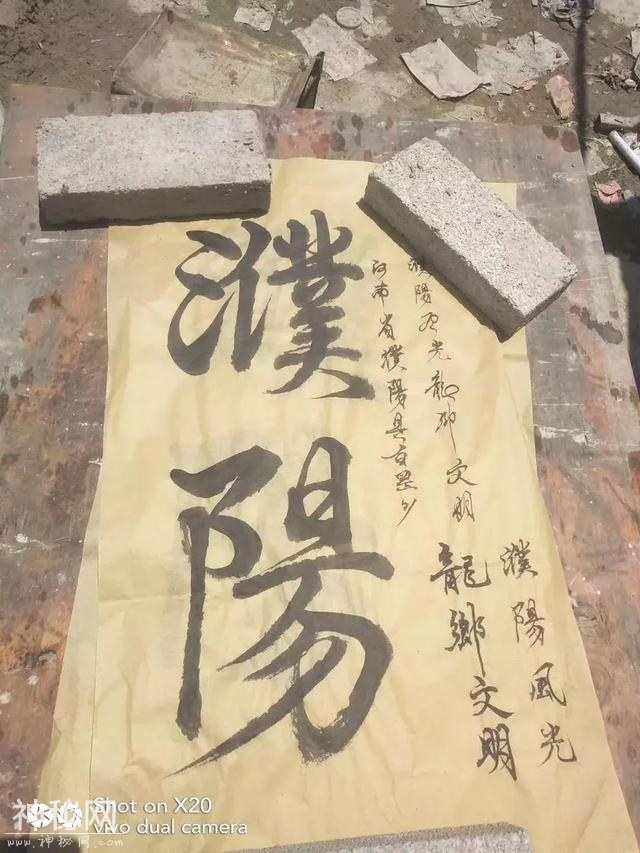 濮陽
濮陽风光龍乡文明
河南省濮陽县白罡乡
濮陽風光
龍鄉文明
神秘网
www.神秘网.com
Shot on X20
Vivo dual camera